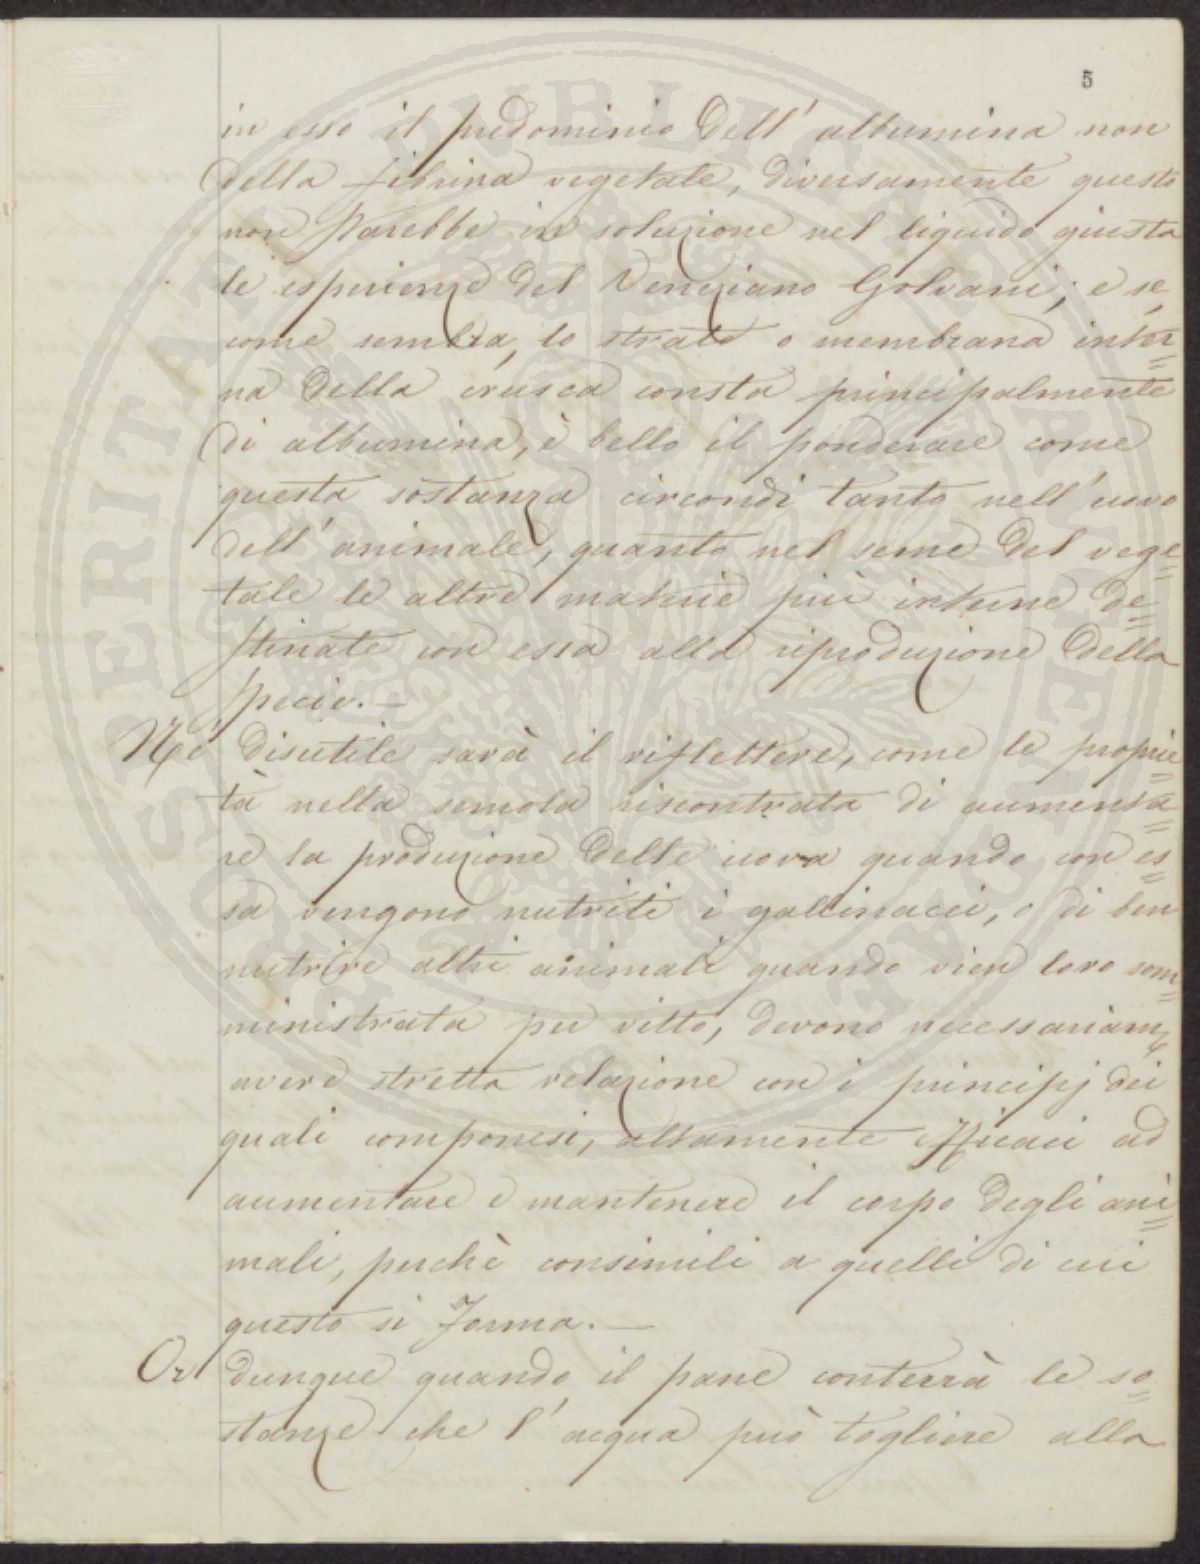 5
in esso il predominio dell' albumina non
della fibrina vegetale, diversamente questo
non starebbe in soluzione nel liquido giusta
le esperienze del Veneziano Golvani; e se,
come sembra, lo strato o membrana inter=
na della crusca consta principalmente
di albumina, è bello il ponderare come
questa sostanza circondi tanto nell' uovo
dell' animale, quanto nel seme del vege=
tale le altre materie più interne de=
stinate con essa alla riproduzione della
specie. —
Nè disutile sarà il riflettere, come le proprie=
tà nella semola riscontrata di aumenta=
re la produzione delle uova quando con es=
sa vengono nutriti i gallinacei, o di ben
nutrire altri animali quando vien loro som=
ministrata per vitto, devono necessariam.e
avere stretta relazione con i principj dei
quali componesi, altamente efficaci ad
aumentare e mantenere il corpo degli ani=
mali, perchè consimili a quelli di cui
questo si forma. —
Or dunque quando il pane conterrà le so=
stanze che l' acqua può togliere alla
PROSPERITATI PUBLICAE AUGENDAE